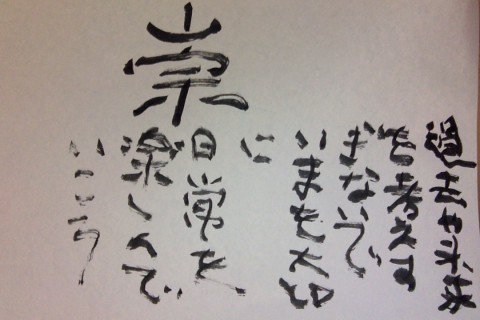 崇
過去や未来
を考えす
ぎないで
いまを大切
に
日常を
楽しんで
いこう